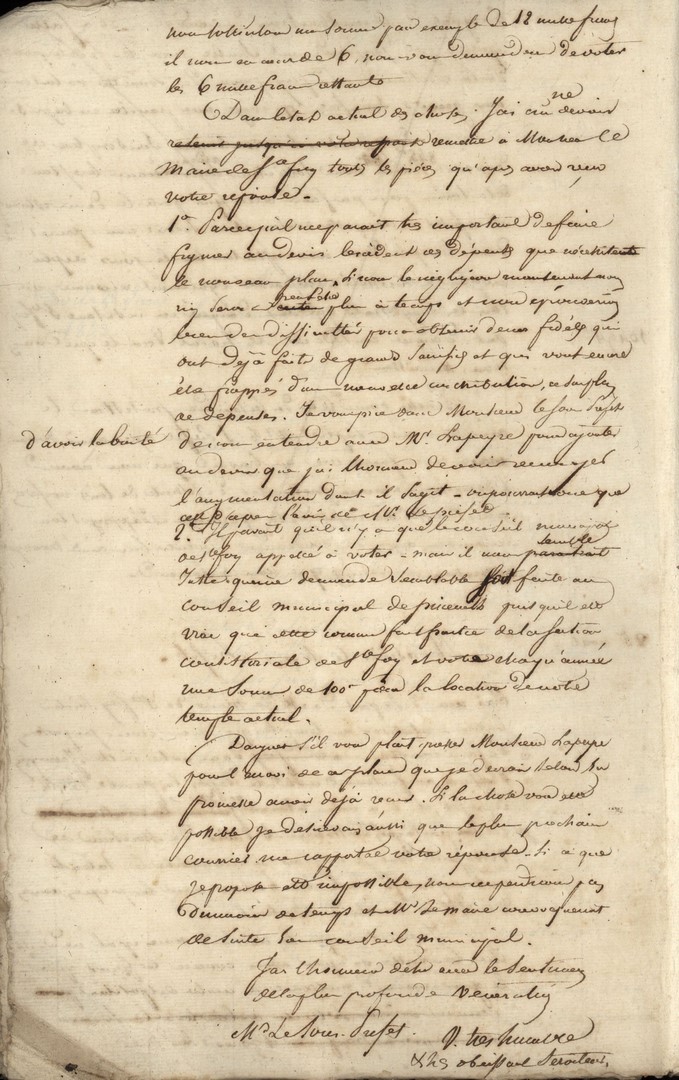 nous sollicitons une somme par exemple de 12 mille francs
il nous en accorde 6, nous vous demandons de voter
les 6 mille francs
Dans l'état actuel des choses. J'ai cru ne devoir
remettre à Monsieur le
Maire de Ste foy toutes les pièces qu'après avoir reçu
votre réponse.
1°. Parce qu'il me parait très important de faire
figurer au devis des dépenses que nécessitent
le nouveau plan, si nous le négligeons maintenant nous
n'y serons peut être plus à temps et nous éprouverons
bien des difficultés pour obtenir de nos fidèles qui
ont déjà fait de grands sacrifices et qui vont encore
être frappés d'une nouvelle contribution, ce surplus
de dépenses. Je vous prie donc Monsieur le Sous Préfet
d'avoir la bonté
de vous entendre avec Mr. Lapeyre pour ajouter
au devis que j'ai l'honneur de vous renvoyer
l'augmentation dont il s'agit
2°. Il parait qu'il n'y a que le conseil municipal
de Ste foy appelé à voter - mais il nous semble parait
juste qu'une demande semblable soit faite au
conseil municipal de pineuilh puisqu'il est
vrai que cette commune fait partie de la section
consistoriale de Ste foy et vote chaque année
une somme de 100f pour la location de notre
temple actuel.
Daignez s'il vous plait presser Monsieur Lapeyre
pour l'envoi de ce plan que je devrais selon sa
promesse avoir déjà reçu. Si la chose vous est
possible je désirerais aussi que le plus prochain
courrier me rapportat votre réponse. Si ce que
je propose est impossible, nous ne perdrions pas
de temps et Mr le maire convoquerait
de suite son conseil municipal.
J'ai l'honneur d'être avec les sentimens
de la plus profonde vénération
Mr Le Sous-Préfet
V. très humble
& très obéissant serviteur,